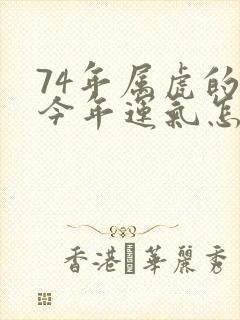 74年属虎的
今年运气怎
香港華麗秀